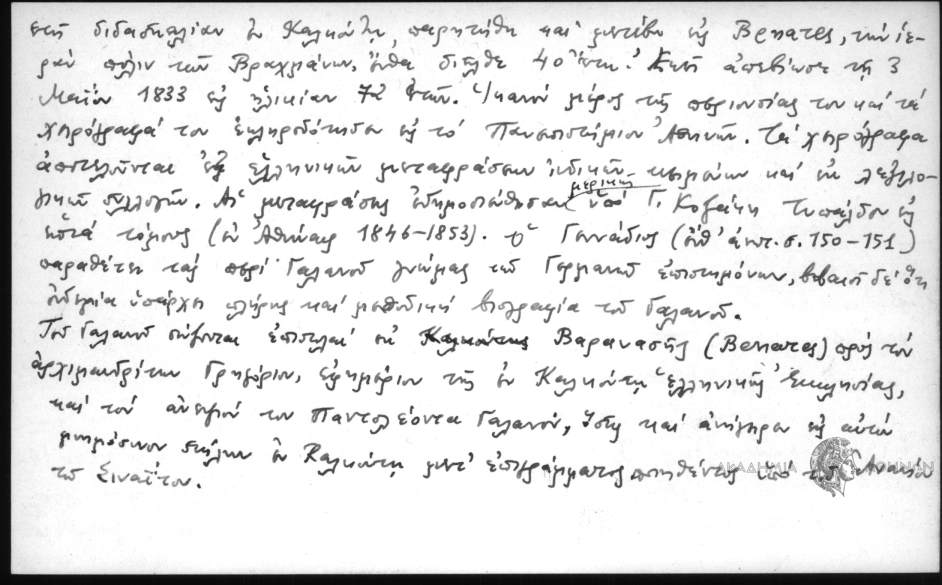 τὴν διδασκαλίαν ἐν Καλκούτῃ, παρητήθη καὶ μετέβη εἰς Benares, τὴν ἱε-
ρὰν πόλιν τῶν Βραχμάνων, ἔνθα διῆλθε 40 ἔτη. Ἐκεῖ ἀπεβίωσε τῇ 3
Μαΐου 1833 εἰς ἡλικίαν 72 ἐτῶν. Ἱκανὸν μέρος τῆς περιουσίας του καὶ τὰ
χειρόγραφά του ἐκληροδότησεν εἰς τὸ Πανεπιστήμιον Ἀθηνῶν. Τὰ χειρόγραφα
ἀποτελοῦνται ἐξ ἑλληνικῶν μεταφράσεων ἰνδικῶν κειμένων καὶ ἐκ λεξιλο-
γικῶν συλλογῶν. Αἱ μεταφράσεις ἐδημοσιεύθησαν μερικῶς ὑπὸ Γ. Κοζάκη Τυπάλδου εἰς
ἑπτὰ τόμους (ἐν Ἀθήναις 1846-1853). Ὁ Γεννάδιος (ἔνθ' ἀνωτ. σ. 150-151)
παραθέτει τὰς περὶ Γαλανοῦ γνώμας τῶν Γερμανῶν ἐπιστημόνων, βεβαιοῖ δὲ ὅτι
οὐδεμία ὑπάρχει πλήρης καὶ μεθοδικὴ βιογραφία τοῦ Γαλανοῦ.
Τοῦ Γαλανοῦ σώζονται ἐπιστολαὶ ἐκ Βαρανάσης (Benares) πρὸς τὸν
ἀρχιμανδρίτην Γρηγόριον, ἐφημέριον τῆς ἐν Καλκούτῃ Ἑλληνικῆς Ἐκκλησίας,
καὶ τὸν ἀνεψιόν του Παντολέοντα Γαλανόν, ὅστις καὶ ἀνήγειρεν εἰς αὐτὸν
μνημόσυνον στήλην ἐν Καλκούτῃ μετ' ἐπιγράμματος ποιηθέντος ὑπὸ τοῦ Ἀνανίου
τοῦ Σιναΐτου.
ΑΚΑΔΗΜΙΑ ΑΘΗΝΩΝ